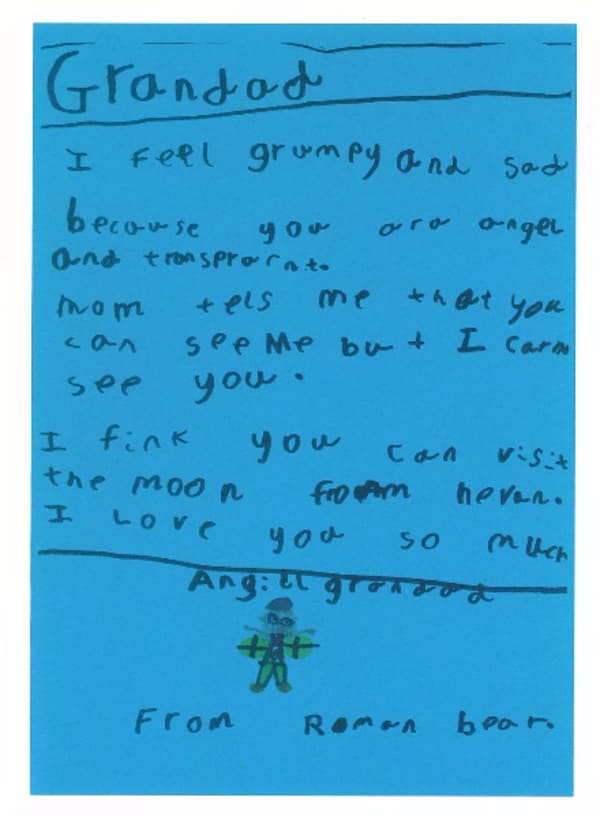 Grandad
I feel grumpy and sad
because you are angel
and transprarnt.
mom tels me that you
can see me but I carn
see you.
I fink you can visit
the moon from hevan.
I Love you so much
Angill grandad
From Roman bear.